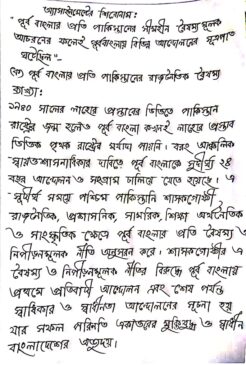 অ্যাসাইনমেন্টের শিরোনাম:
"পূর্ব বাংলার প্রতি পাকিস্তানের সীমাহীন বৈষম্যমূলক
আচরণের ফলেই পূর্ববাংলায় বিভিন্ন আন্দোলনের সূত্রপাত
ঘটেছিল"-
(ক) পূর্ব বাংলার প্রতি পাকিস্তানের রাজনৈতিক বৈষম্য
১৯৪০ সালের লাহোর প্রস্তাবের ভিত্তিতে পাকিস্তান
রাষ্ট্রের জন্ম হলেও পূর্ব বাংলা কখনই লাহোর প্রস্তাব
ভিত্তিক পৃথক রাষ্ট্রের মর্যাদা পায়নি। বরং আঞ্চলিক
স্বায়ত্তশাসনাধিকার দাবিতে পূর্ব বাংলাকে সুদীর্ঘ ২৪
বছর আন্দোলন ও সংগ্রাম চালিয়ে যেতে হয়েছে। এ
সুদীর্ঘ সময়ে পশ্চিম পাকিস্তানি শাসকগোষ্ঠী
রাজনৈতিক, প্রশাসনিক, সামরিক, শিক্ষা অর্থনৈতিক
ও সাংস্কৃতিক ক্ষেত্রে পূর্ব বাংলার প্রতি বৈষম্য ও
নিপীড়নমূলক নীতি অনুসরন করে। শাসকগোষ্ঠীর এ
বৈষম্য ও নিপীড়নমূলক নীতির বিরুদ্ধে পূর্ব বাংলায়
প্রথমে প্রতিবাদী আন্দোলন এবং শেষ পর্যন্ত
স্বাধিকার ও স্বাধীনতা আন্দোলনের সূচনা হয়
যার সফল পরিনতি একাত্তরের মুক্তিযুদ্ধ ও স্বাধীন
বাংলাদেশের অভ্যুদয়।